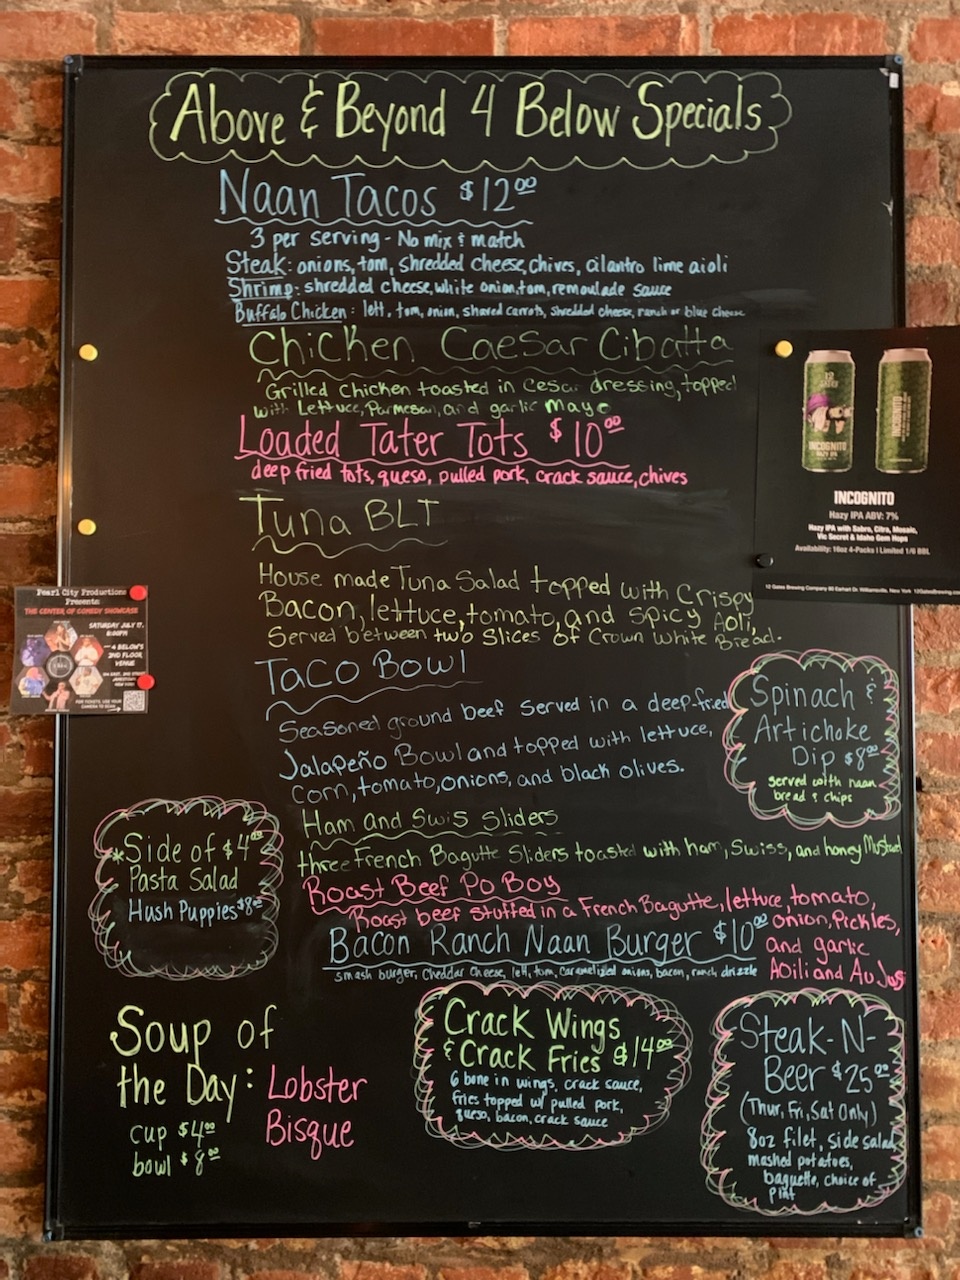 Above & Beyond 4 Below Specials
Naan Tacos $12.00
3 per serving - No mix & match
Steak: onions, tom, shredded cheese, chives, cilantro lime aioli
Shrimp: shredded cheese, white onion, tom, remoulade sauce
Buffalo Chicken: lett, tom, onion, shaved carrots, shredded cheese, ranch or blue cheese
Chicken Caesar Cibatta
Grilled Chicken toasted in Cesar dressing, topped
with Lettuce, Parmesan, and garlic mayo
Loaded Tater Tots $10.00
deep fried tots, queso, pulled pork, crack sauce, chives
Tuna BLT
House made Tuna Salad topped with Crispy
Bacon, lettuce, tomato, and spicy Aoli,
Served between two Slices of Crown White Bread.
Taco Bowl
Seasoned ground beef served in a deep-fried
Jalapeño Bowl and topped with lettuce,
Corn, tomato, onions, and black olives.
Spinach &
Artichoke
Dip $8.00
served with naan
bread & chips
Ham and Swis Sliders
three French Bagutte Sliders toasted with ham, Swiss, and honey Mustard
*Side of $4.00
Pasta Salad
Hush Puppies $8.00
Roast Beef Po Boy
Roast beef stuffed in a French Bagutte, lettuce, tomato,
onion, Pickles,
and garlic
Aoili and Au Jus
Bacon Ranch Naan Burger $10.00
smash burger, Cheddar cheese, lett, tom, caramelized onions, bacon, ranch drizzle
Soup of
the Day: Lobster
Bisque
cup $4.00
bowl $8.00
Crack Wings
& Crack Fries $14.00
6 bone in wings, crack sauce,
fries topped w/ pulled pork,
queso, bacon, crack sauce
Steak-N-
Beer $25.00
(Thur, Fri, Sat Only)
8oz filet, side salad,
mashed potatoes,
baguette, choice of
pint
INCOGNITO
HAZY IPA
INCOGNITO
Hazy IPA ABV: 7%
Hazy IPA with Sabro, Citra, Mosaic,
Vic Secret & Idaho Gem Hops
Availability: 16oz 4-Packs | Limited 1/6 BBL
Pearl City Productions
Presents:
THE CENTER OF COMEDY SHOWCASE
SATURDAY JULY 17,
8:00PM
4 BELOW'S
2ND FLOOR
VENUE
FOR TICKETS, USE YOUR
CAMERA TO SCAN